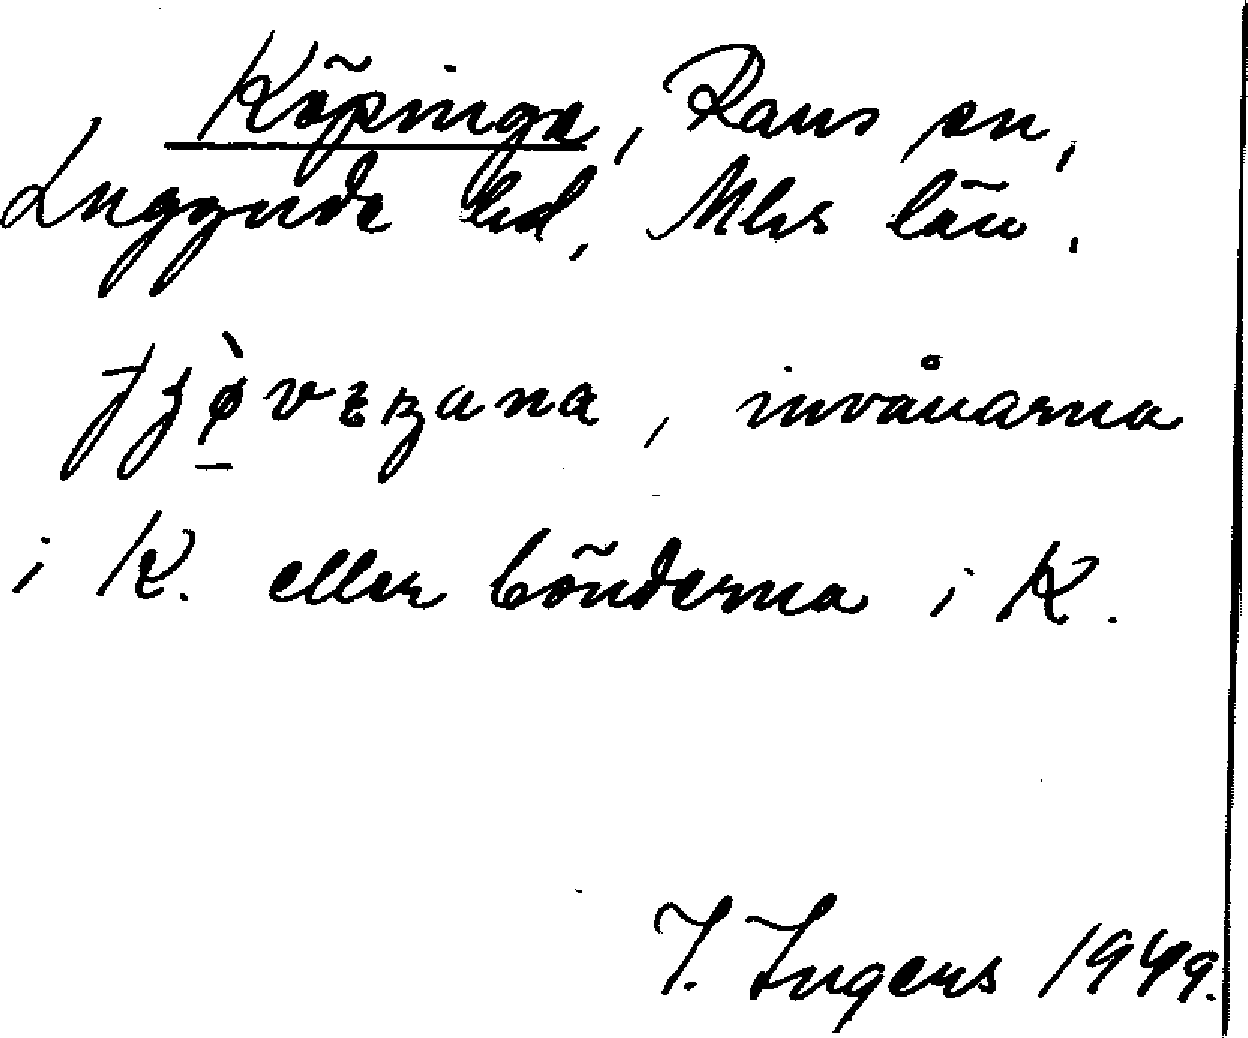 Köpinge, Raus sn,
Luggude hd, Mhs län.
invånarna
i K. eller bönderna i K.
I. Ingers 1949.